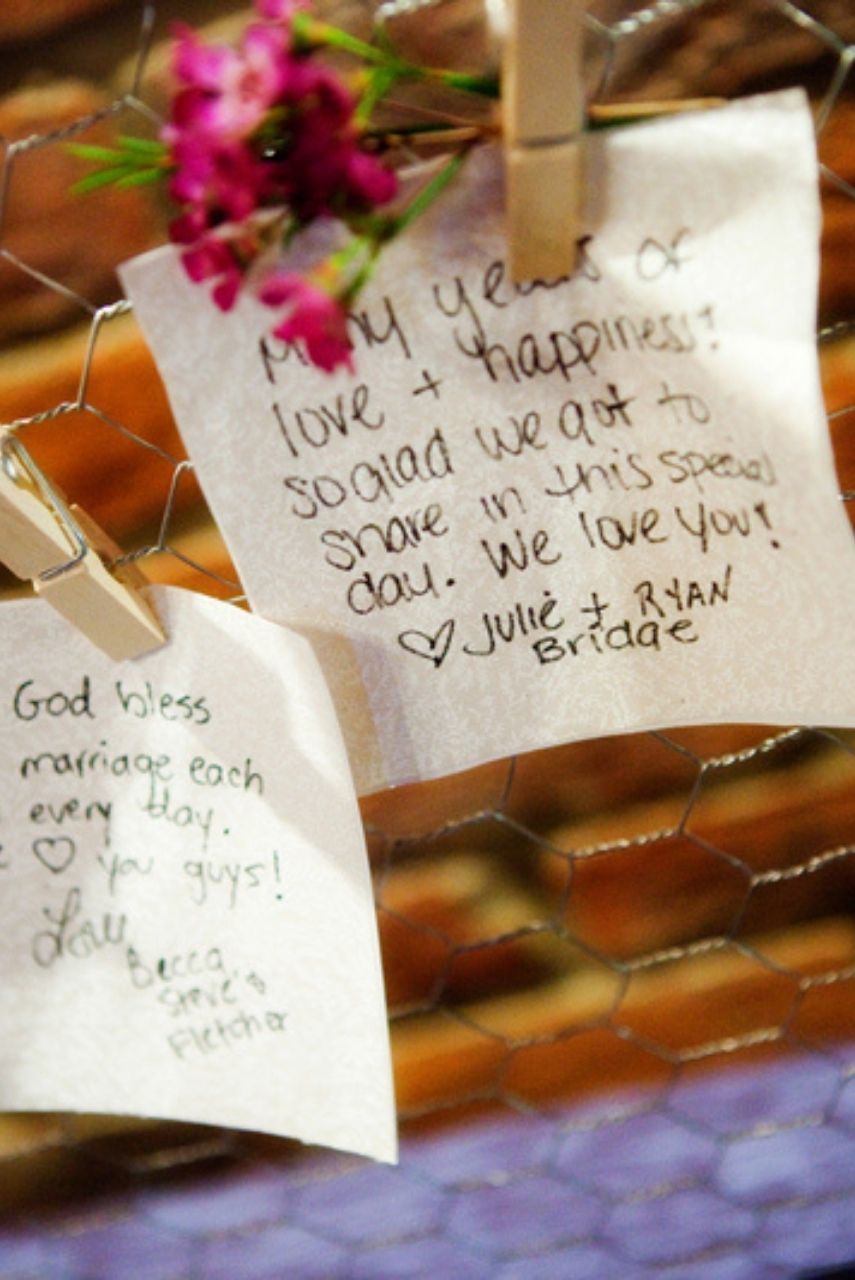 Many years of
love + happiness!
so glad we got to
share in this special
day. We love you!
♡ Julie + RYAN
Bridge
God bless
marriage each
every day.
♡ you guys!
Love,
Becca,
Steve &
Fletcher